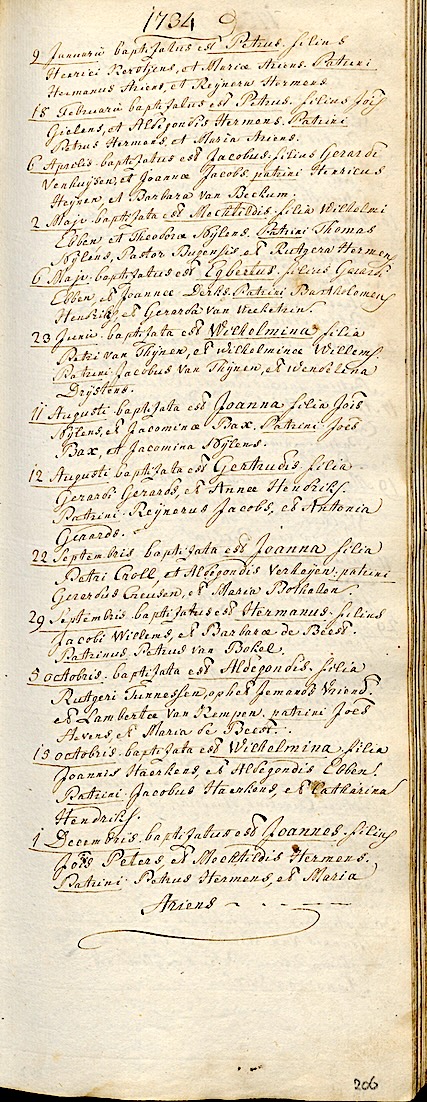 1734
9 Januarii baptisatus est Petrus filius
Henrici Kerstjens, et Mariæ Ariens. Patrini
Hermanus Ariens, et Reijnera Hermens.
18 Februarii baptisatus est Petrus filius Jois
Gielens, et Aldegondis Hermens. Patrini
Petrus Hermens, et Maria Ariens.
6 Aprilis baptisatus est Jacobus filius Gerardi
Venhuijsen, et Joannæ Jacobs, patrini Henricus
Heijnen, et Barbara van Beckum.
2 Maje baptisata est Mechtildis filia Wilhelmi
Ebben et Theodoræ Nijlens. Patrini Thomas
Nijlens, Pastor et Rutgera Hermens
6 Maje baptisatus est Egbertus filius Gerardi
Ebben, et Joannæ Derks. Patrini Bartholomeus
Hendriks, et Gerarda van
23 Junii baptisata est Wilhelmina filia
Petri van Thijnen, et Wilhelminæ Willems.
Patrini Jacobus van Thijnen, et Wendelena
Drijssens.
11 Augusti baptisata est Joanna filia Jois
Nijlens, et Jacominæ Bax. Patrini Joes
Bax, et Jacomina Nijlens.
12 Augusti baptisata est Gertrudis filia
Gerardi Gerards, et Annæ Hendriks.
Patrini Reijnerus Jacobs, et Antonia
Gerards.
22 Septembris baptisata est Joanna filia
Petri Croll, et Aldegondis Verheijen. patrini
Gerardus et Maria
29 Septembris baptisatus est Hermanus filius
Jacobi Willems, et Barbaræ de Beest.
Patrinus Petrus van Bokel.
5 octobris baptisata est Aldegondis filia
Rutgeri Tunnessen, op het Jemands Vriend.
et Lambertæ van Kempen. patrini Joes
Arens, et Maria de Beest.
15 octobris baptisata est Wilhelmina filia
Joannis Haerkens, et Aldegondis Ebben.
Patrini Jacobus Haerkens, et Catharina
Hendriks.
1 Decembris baptisatus est Joannes filius
Jois Peters, et Mechtildis Hermens.
Patrini Petrus Hermens, et Maria
Ariens
206